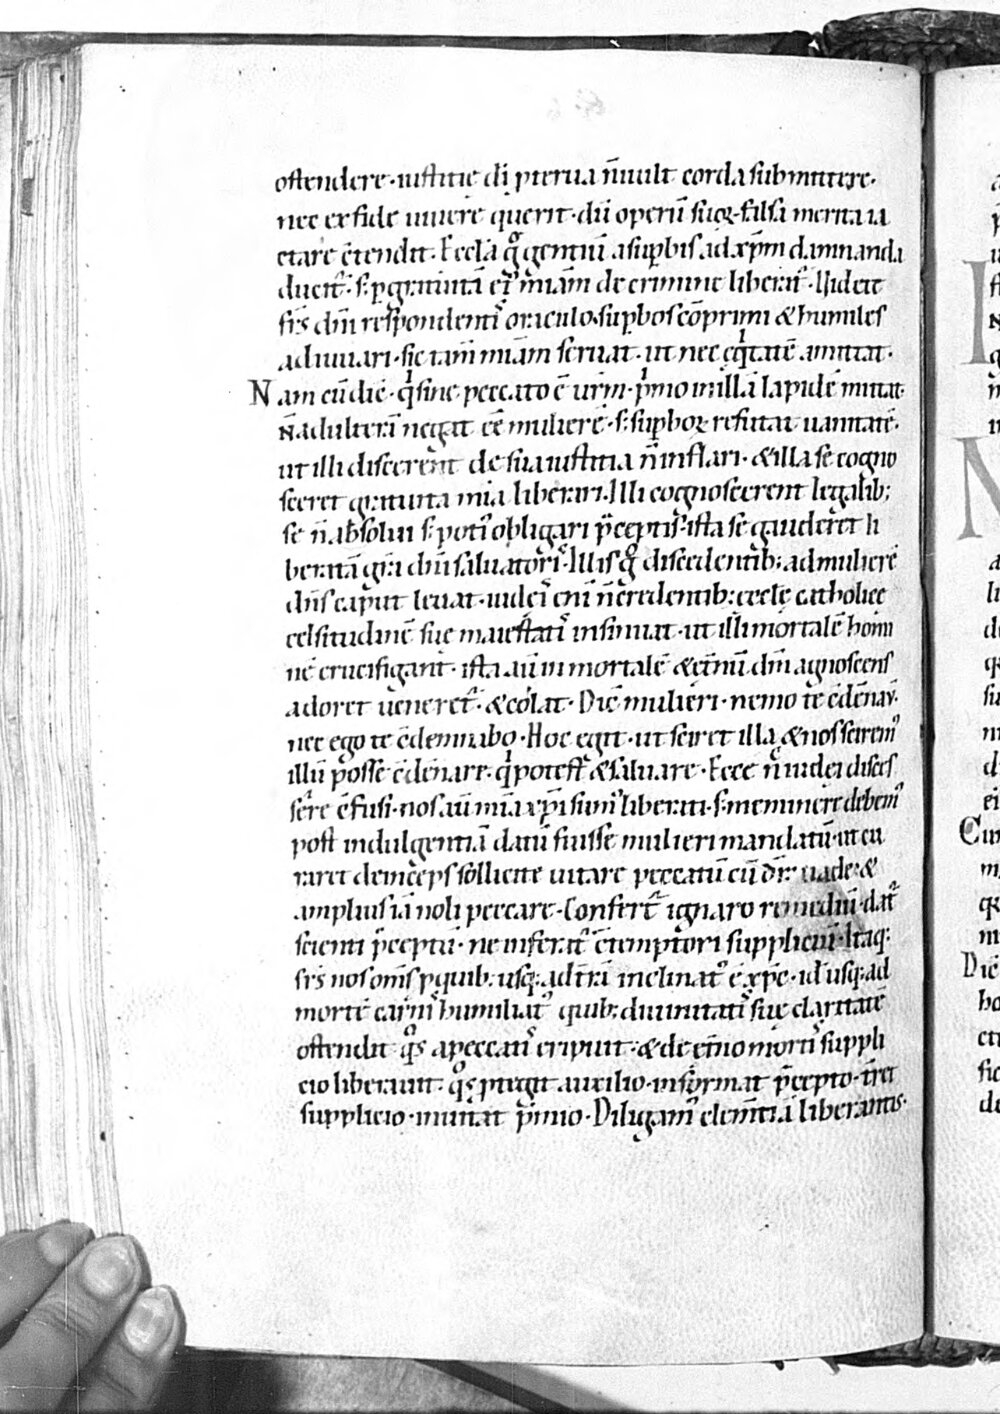 ostendere· iustitię dī p̄terua n̄ uult corda submittere·
nec ex fide uiuere querit· dū operū suoꝝ· falsa merita ia
ctare c̄tendit· Eccła q̊ gentiū a supbis ad xp̄m damnanda
ducit᷑· s; p gratuitā ei᷒ mīam de crimine liberat᷑· Uidete
frs̄ dn̄i respondentis oraculo· supbos cōprimi & humiles
adiuuari· sic tam̄ mīam seruat· ut nec eq̇tatē amittat·
Nam cū dic̄· q̇ sine peccato ē ur̄m· ṗmo in illā lapidē mittat·
n̄ adulterā negat eē mulierē· s; supboꝝ refutat uanitatē·
ut illi discerent de sua iustitia n̄ inflari· & illa se cogno
sceret gratuita mīa liberari· Illi cognoscerent legalib;
se n̄ absolui s; poti᷒ obligari p̄ceptis· ista se gauderet li
beratā gr̄a dn̄i saluatoris· Illis q̊ discedentib; ad mulierē
dn̄s caput leuat· iudeis eni n̄ credentib; eccłę catholicę
celsitudinē suę maiestatis insinuat· ut illi mortalē homi
nē crucifigant· ista aū inmortalē & et̄nū dn̄m agnoscens
adoret ueneret᷑· & colat· Dic̄ mulieri· nemo te c̄dēnau·
nec ego te c̄demnabo· Hoc egit· ut sciret illa & nos scirem᷒
illū posse c̄dēnare· q̇ potest & saluare· Ecce n̄ iudei disces
sere c̄fusi· nos aū mīa xp̄i sum᷒ liberati· s; meminere debem᷒
post indulgentiā datū fuisse mulieri mandatū· ut cu
raret deinceps sollicite uitare peccatū cū dr̄· uade· &
amplius iā noli peccare· Confert᷑ ignaro remediū· dat᷑
scienti p̄ceptū· ne inferat᷑ c̄temptori suppliciū· Itaq;
frs̄ nos om̄s p quib; usq; ad t̄rā inclinat᷒ ē xp̄c· id usq; ad
mortē carnis humiliat᷒· quib; diuinitatis suę claritatē
ostendit q̊s a peccatis eripuit· & de et̄no mortis suppli
cio liberauit· q̊s p̄tegit auxilio· informat p̄cepto· t̄ret
supplicio· inuitat p̄mio· Diligam᷒ clem̄tiā liberantis·